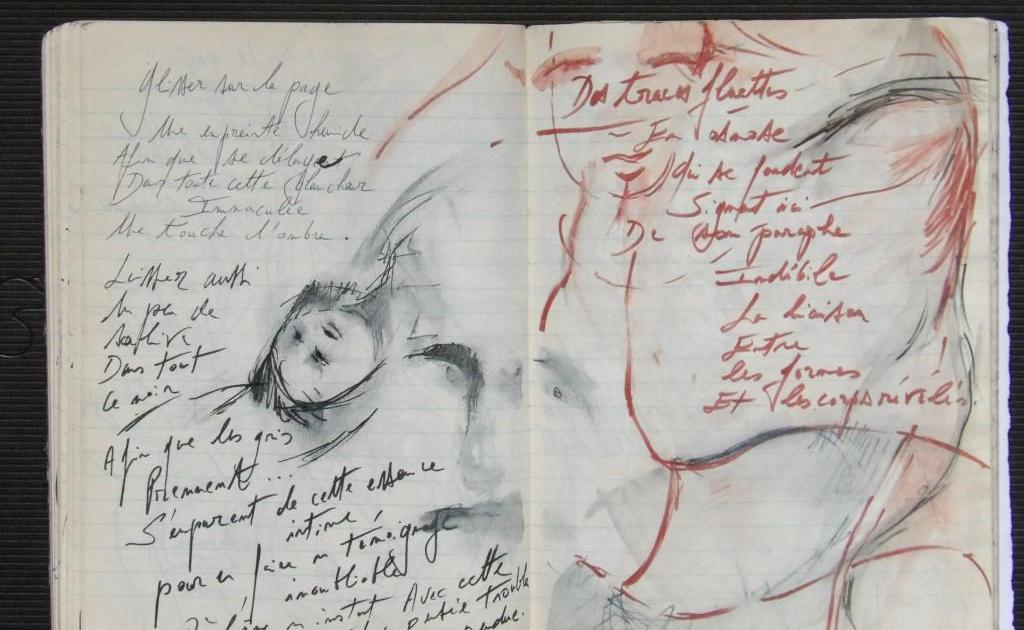 Glisser sur la page
Une empreinte humide
Afin que se délayent
Dans toute cette blancheur
Immaculée
Une touche d'ombre.
Laisser aussi
Un peu de
Dans tout
Ce noir
Afin que les gris
Prennent ...
S'emparent de cette essence
intime,
pour en faire un témoignage
inoubliable
un instant Avec cette
trouble
Des traces fluettes
En osmose
Qui se fondent
Signant ici
De son paraphe
Indébile
La liaison
Entre
les formes
Et les corps révélés.